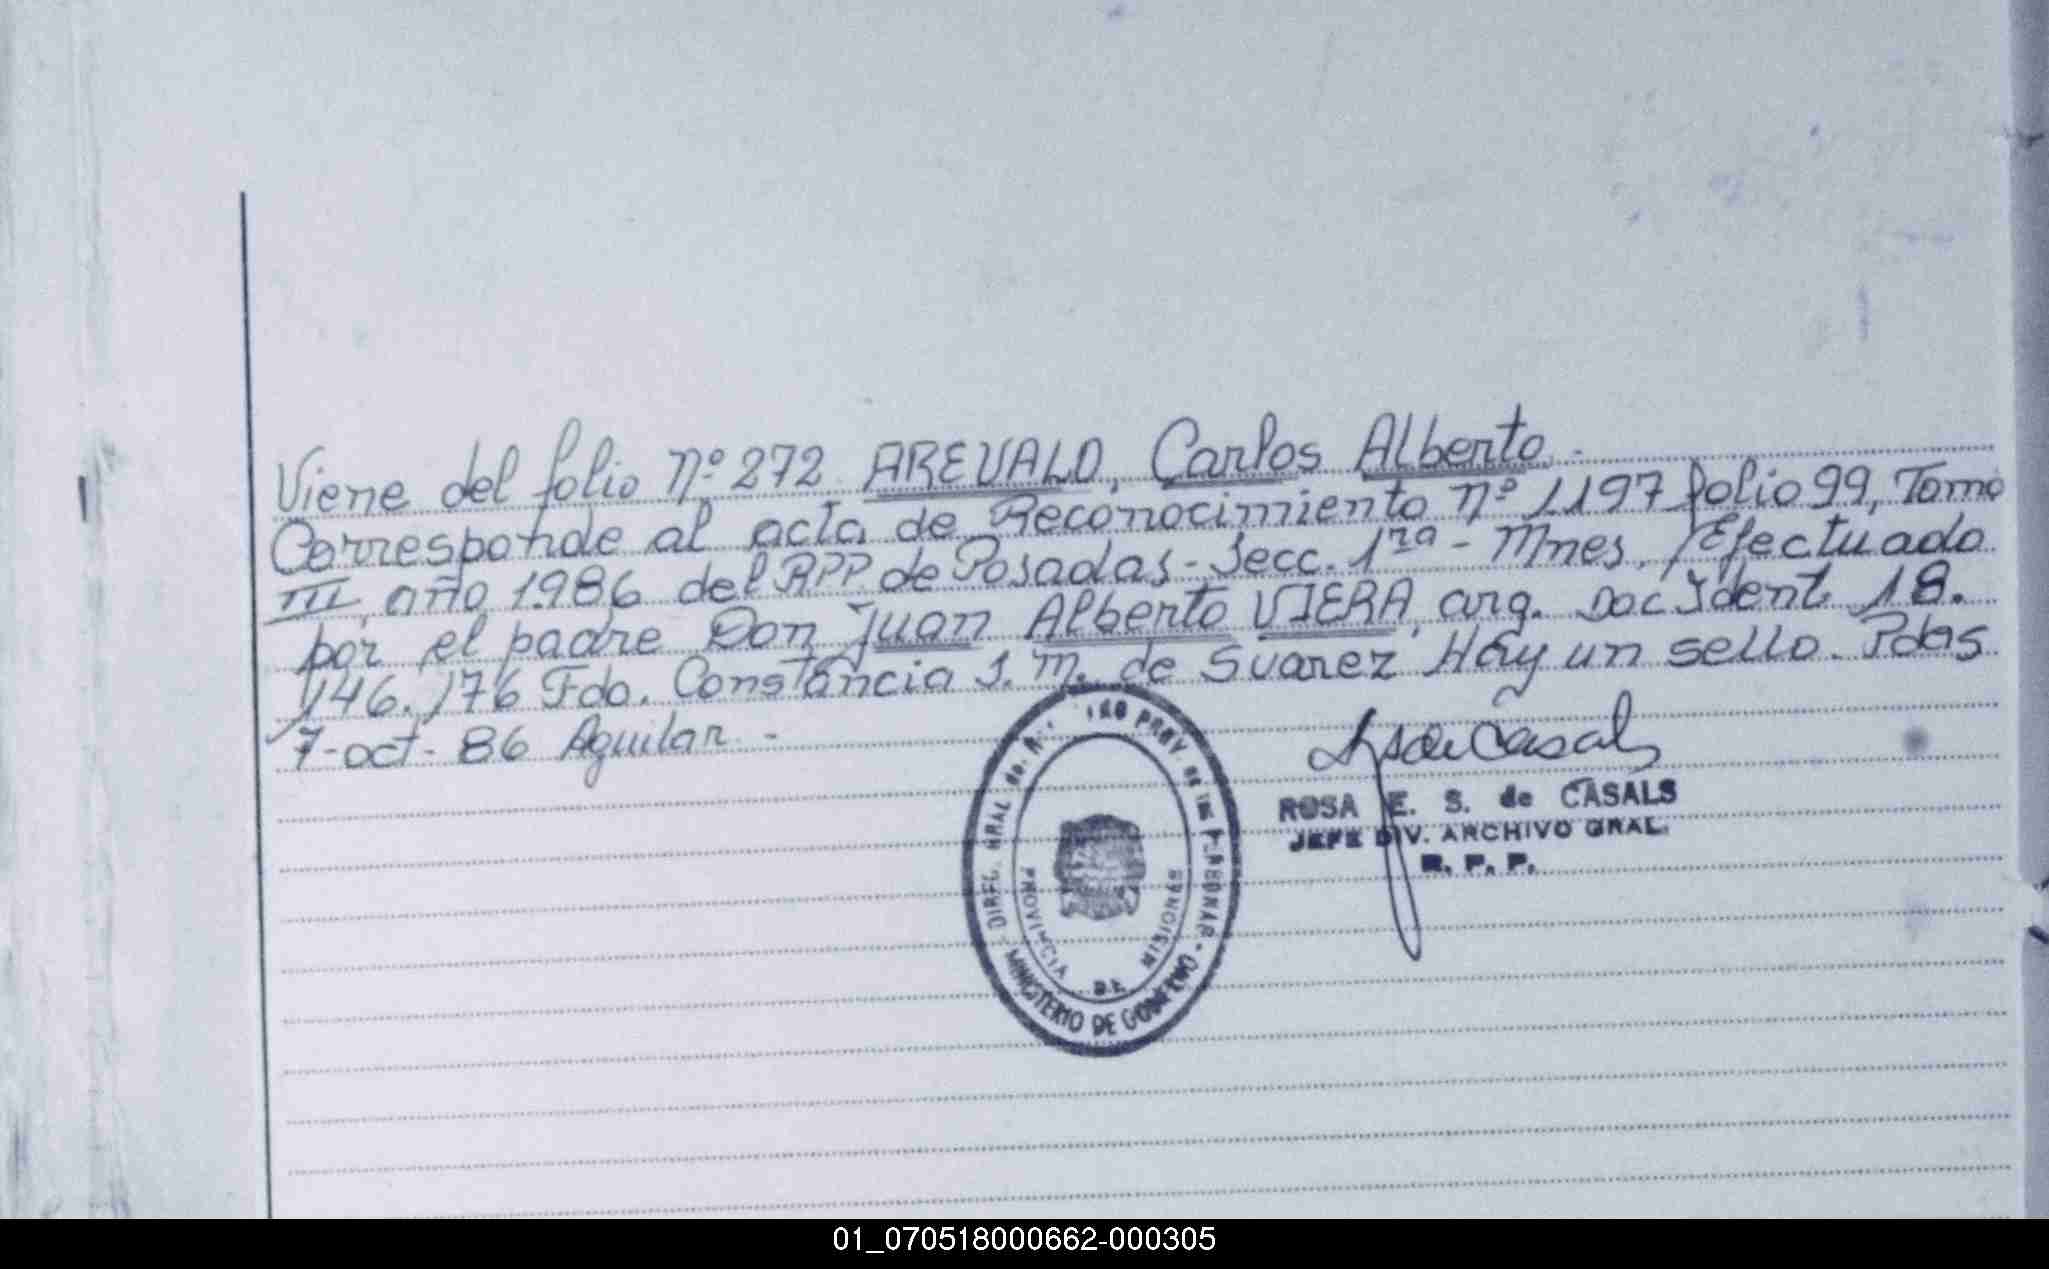 Viene del folio Nº 272 AREVALO, Carlos Alberto.-
Corresponde al acta de Reconocimiento Nº 1197 folio 99, Tomo
III, año 1986 del RPP de Posadas - Secc. 1ra - Mnes. Efectuado
por el padre Don Juan Alberto VIERA, arg. Doc Ident 18.
146.176 Fdo. Constancia S. M. de Suarez Hay un sello. Pdas
7-oct-86 Aguilar.-
ROSA E. S. de CASALS
JEFE DIV. ARCHIVO GRAL.
R. P. P.
DIREC. GRAL de PROV. DE LAS PERSONAS
MINISTERIO DE GOBIERNO
PROVINCIA DE MISIONES
01_070518000662-000305